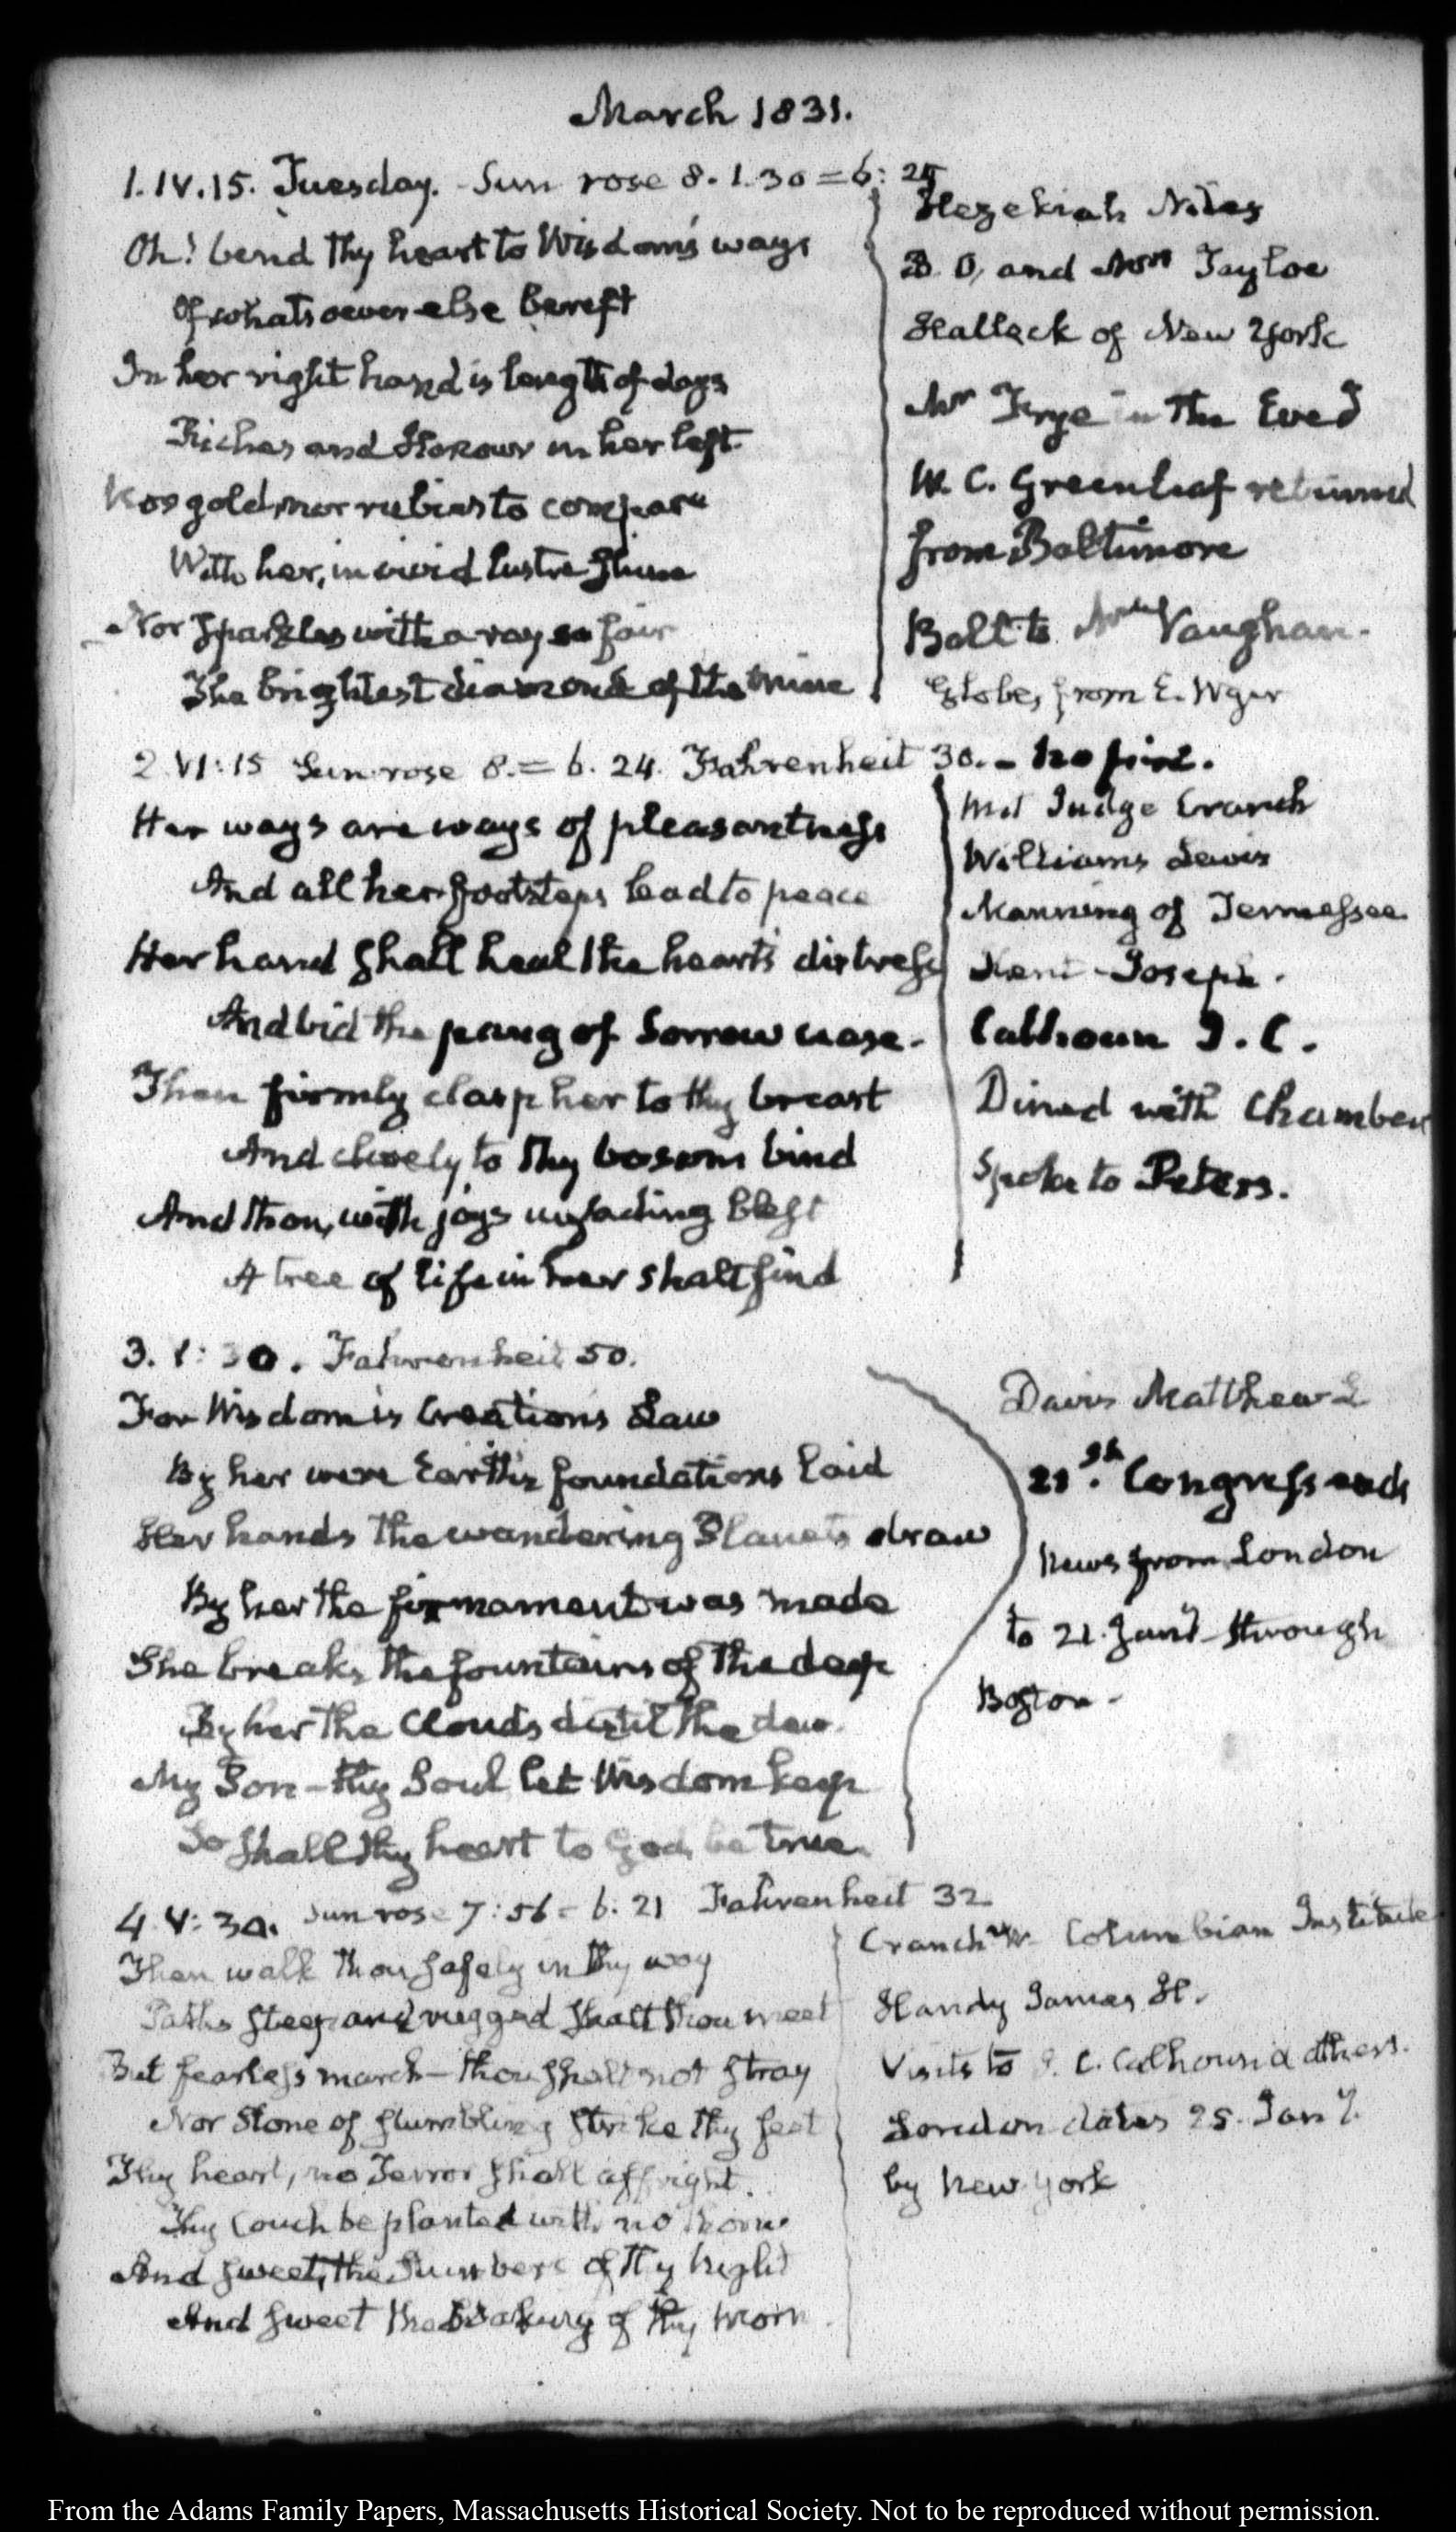 March 1831.
1. IV.15. Tuesday. Sun rose 8. 1. 30 = 6: 25
Oh! bend thy heart to Wisdom's ways
Of whatsoever else bereft
In her right hand is length of days
Riches and Honour in her left.
Nor gold, nor rubies to compare
With her, in vivid lustre shine
Nor sparkles with a ray so fair
The brightest diamond of the mine
Hezekiah Niles
B. O. and Mrs Tayloe
Hallack of New York
Mr Frye in the Eveg
W. C. Greenleaf returned
from Baltimore
Ball to Vaughan.
Globe, from E. Wyer
2. VI:15 Sun rose 8. = 6. 24. Fahrenheit 30. - no fire.
Her ways are ways of pleasantness
And all her footsteps lead to peace
Her hand shall heal the heart's distress
And bid the pang of Sorrow cease.
Then firmly clasp her to thy breast
And closely to thy bosom bind
And thou, with joys unfading blest
A tree of life in her shalt find
Met Judge Cranch
Williams Lewis
Manning of Tennessee
Kent - Joseph.
Calhoun J. C.
Dined with Chamber
Spoke to Peters.
3. 1:30. Fahrenheit 50.
For Wisdom is Creation's Law
By her were Earth's foundations laid
Her hands the wandering Planets draw
By her the firmament was made
She breaks the fountains of the deep
By her the Clouds distil the dew.
My Son - thy Soul let Wisdom keep
So shall thy heart to God, be true.
Davis Matthew L
21st. Congress ends
News from London
to 21. Jany through
Boston -
4. V: 30. Sun rose 7:56 = 6: 21 Fahrenheit 32
Then walk thou safely in thy way
Paths steep and rugged shalt thou meet
But fearless march - thou shalt not stray
Nor Stone of stumbling strike thy feet
Thy heart, no Terror shall affright.
Thy Couch be planted with no thorn
And sweet, the Slumbers of thy Night
And sweet the breaking of thy morn.
Cranch W. Columbian Institute
Handy James H.
Visits to J. C. Calhoun & others.
London dates 25. Jany.
by New York
From the Adams Family Papers, Massachusetts Historical Society. Not to be reproduced without permission.